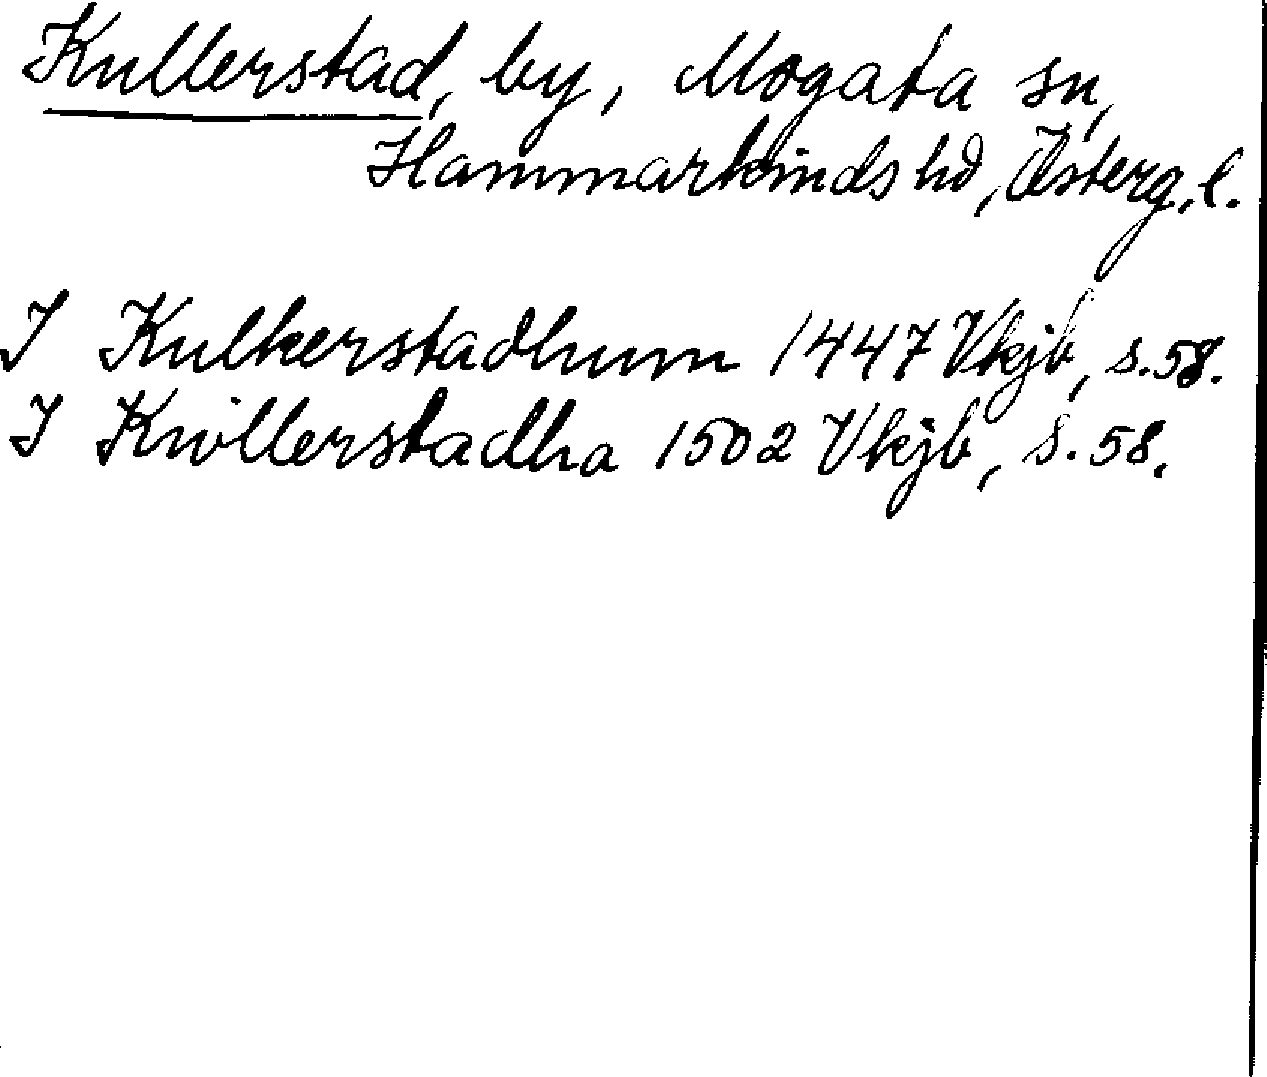 Kullerstad, by, Mogata sn,
Hammarkinds hd, Österg. l.
I Kulkerstadhum 1447 Vkjb, s. 58.
I Kwllerstadha 1502 Vkjb, s. 58.